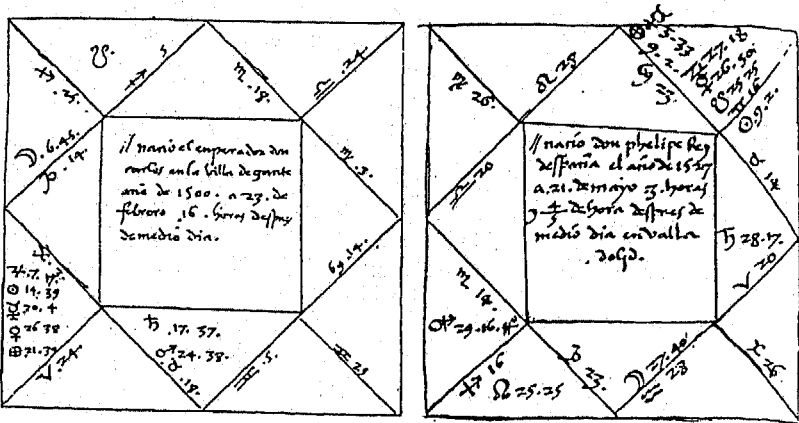 // nacio el emperador don
carlos en la Villa de gante
año de 1500. a 23. de
febrero .16. horas despues
de medio dia.
☋.
♐ 5
♐. 25.
♏ .18.
♎ .24.
♏ .3.
☽. 6. 45.
♑ .14.
♃. 7. 17
☉ 14. 39
20. 4
♀ 26 38
⊕ 21. 39
♈ .24.
♄ .17. 37.
♂ 24. 38.
♉ .18.
♊ .5.
♊ 25
69. 14.
// nacio don phelipe Rey
despaña el año de 1527
a. 21. de mayo 3. horas
y 4/5 de hora despues de
medio dia en Valla
dolid.
♍ 26.
♌ 23
5. 33
9. 2.
27. 18
26. 50
☋ 25 25
♊ 16
☉ 9. 2.
♋ 23
♎ 20
♉ 18
♄ 28. 17.
♈ 20
♏ 18.
♂ 29. 16.
♐ 16
☊ 25. 25
♑ 23.
☽ 27. 40
♒ 28
♓ 26